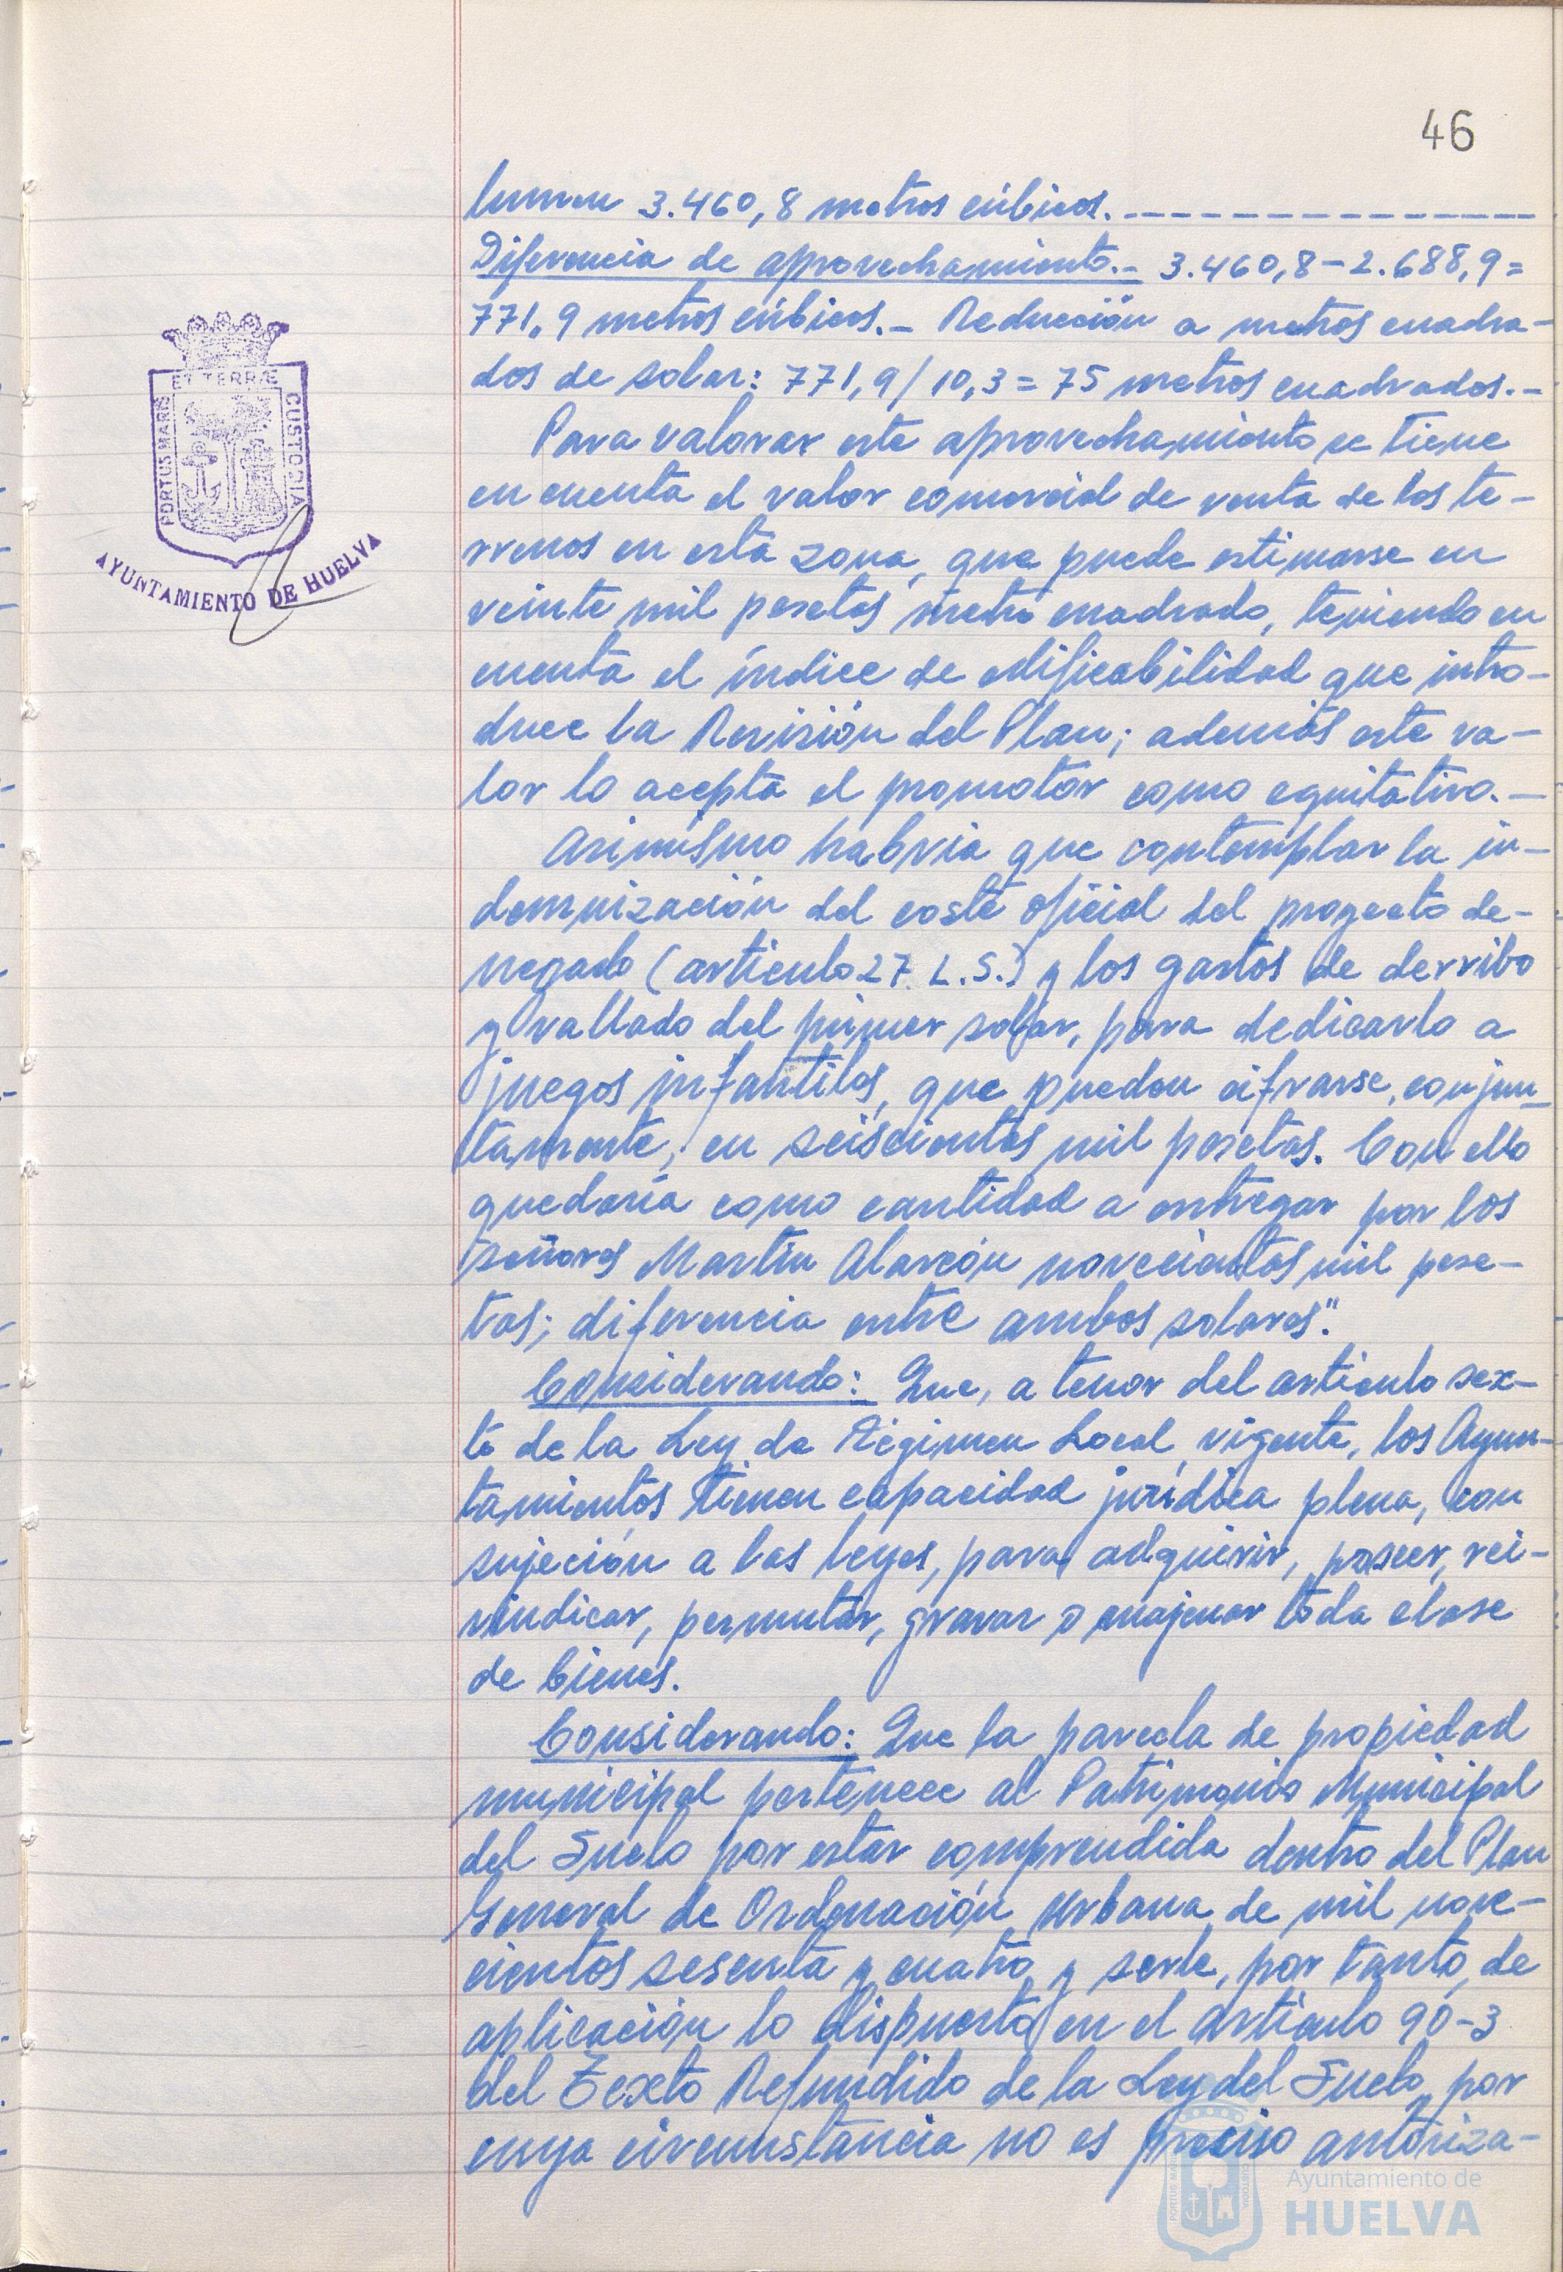 46
lumen 3.460,8 metros cúbicos.
Diferencia de aprovechamiento.- 3.460,8-2.688,9=
771,9 metros cúbicos.- Reducción a metros cuadra-
dos de solar: 771,9/10,3=75 metros cuadrados.-
Para valorar este aprovechamiento se tiene
en cuenta el valor comercial de venta de los te-
rrenos en esta zona, que puede estimarse en
veinte mil pesetas metro cuadrado, teniendo en
cuenta el índice de edificabilidad que intro-
duce la Revisión del Plan; además este va-
lor lo acepta el promotor como equitativo.-
Asimismo habria que contemplar la in-
demnización del coste oficial del proyecto de-
negado (articulo 27. L.S.) y los gastos de derribo
y vallado del primer solar, para dedicarlo a
juegos infantiles, que pueden cifrarse, conjun-
tamente, en seiscientas mil pesetas. Con ello
quedaría como cantidad a entregar por los
señores Martín Alarcón novecientas mil pese-
tas; diferencia entre ambos solares".
Considerando: Que, a tenor del articulo sex-
to de la Ley de Régimen Local vigente, los Ayun-
tamientos tienen capacidad jurídica plena, con
sujeción a las leyes, para adquirir, poseer, rei-
vindicar, permutar, gravar o enajenar toda clase
de bienes.
Considerando: Que la parcela de propiedad
municipal pertenece al Patrimonio Municipal
del Suelo por estar comprendida dentro del Plan
General de Ordenación Urbana de mil nove-
cientos sesenta y cuatro y serle, por tanto, de
aplicación lo dispuesto en el articulo 90-3
del Texto Refundido de la Ley del Suelo, por
cuya circunstancia no es preciso autoriza-
PORTUS MARIS ET TERRÆ CUSTODIA
AYUNTAMIENTO DE HUELVA
Ayuntamiento de
HUELVA